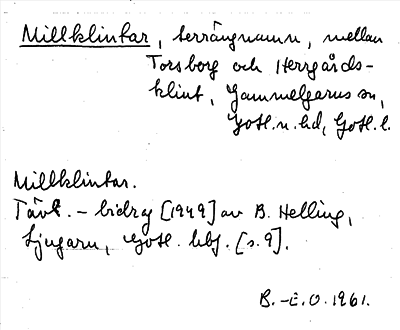 Millklintar, terrängnamn, mellan
Torsborg och Herrgårds-
klint, Gammelgarns sn,
Gotl. n. hd, Gotl. l.
Millklintar.
Tävl. - bidrag [1949] av B. Helling,
Ljugarn, Gotl. hbf. [s. 9].
B.-E.O. 1961.